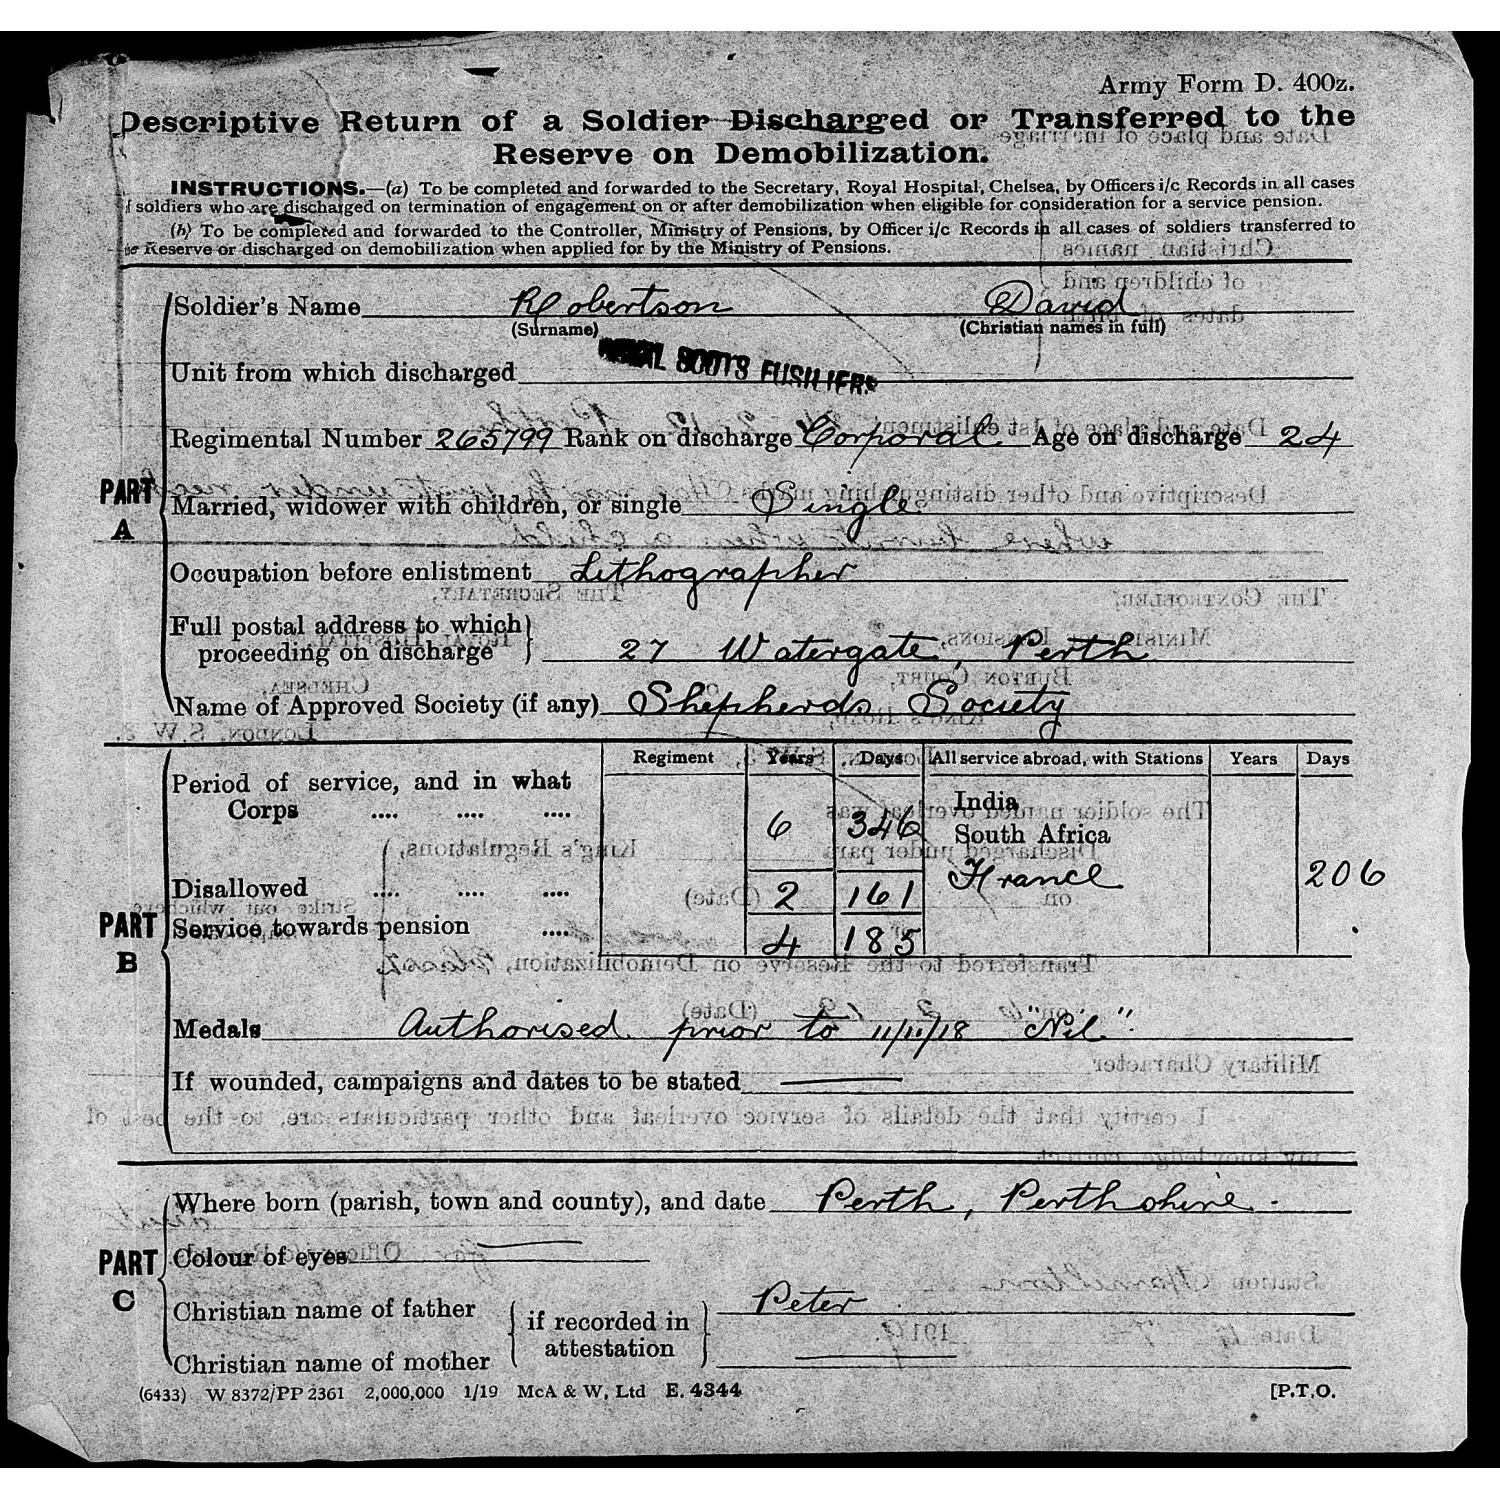 Army Form D. 400z.
Descriptive Return of a Soldier Discharged or Transferred to the
Reserve on Demobilization.
INSTRUCTIONS.—(a) To be completed and forwarded to the Secretary, Royal Hospital, Chelsea, by Officers i/c Records in all cases
of soldiers who are discharged on termination of engagement on or after demobilization when eligible for consideration for a service pension.
(b) To be completed and forwarded to the Controller, Ministry of Pensions, by Officer i/c Records in all cases of soldiers transferred to
the Reserve or discharged on demobilization when applied for by the Ministry of Pensions.
Soldier's Name Robertson David
(Surname) (Christian names in full)
Unit from which discharged ROYAL SCOTS FUSILIERS
Regimental Number 265799 Rank on discharge Corporal Age on discharge 24
PART A
Married, widower with children, or single Single
Occupation before enlistment Lithographer
Full postal address to which
proceeding on discharge } 27 Watergate, Perth
Name of Approved Society (if any) Shepherds Society
Regiment Years Days All service abroad, with Stations Years Days
Period of service, and in what
Corps .... .... .... 6 346 India
South Africa
Disallowed .... .... .... 2 161 France 206
PART B
Service towards pension .... 4 185
Medals Authorised prior to 11/11/18 "Nil".
If wounded, campaigns and dates to be stated —
Where born (parish, town and county), and date Perth, Perthshire.
PART C
Colour of eyes —
Christian name of father { if recorded in } Peter
Christian name of mother { attestation } —
(6433) W 8372/PP 2361 2,000,000 1/19 McA & W, Ltd E. 4344 [P.T.O.